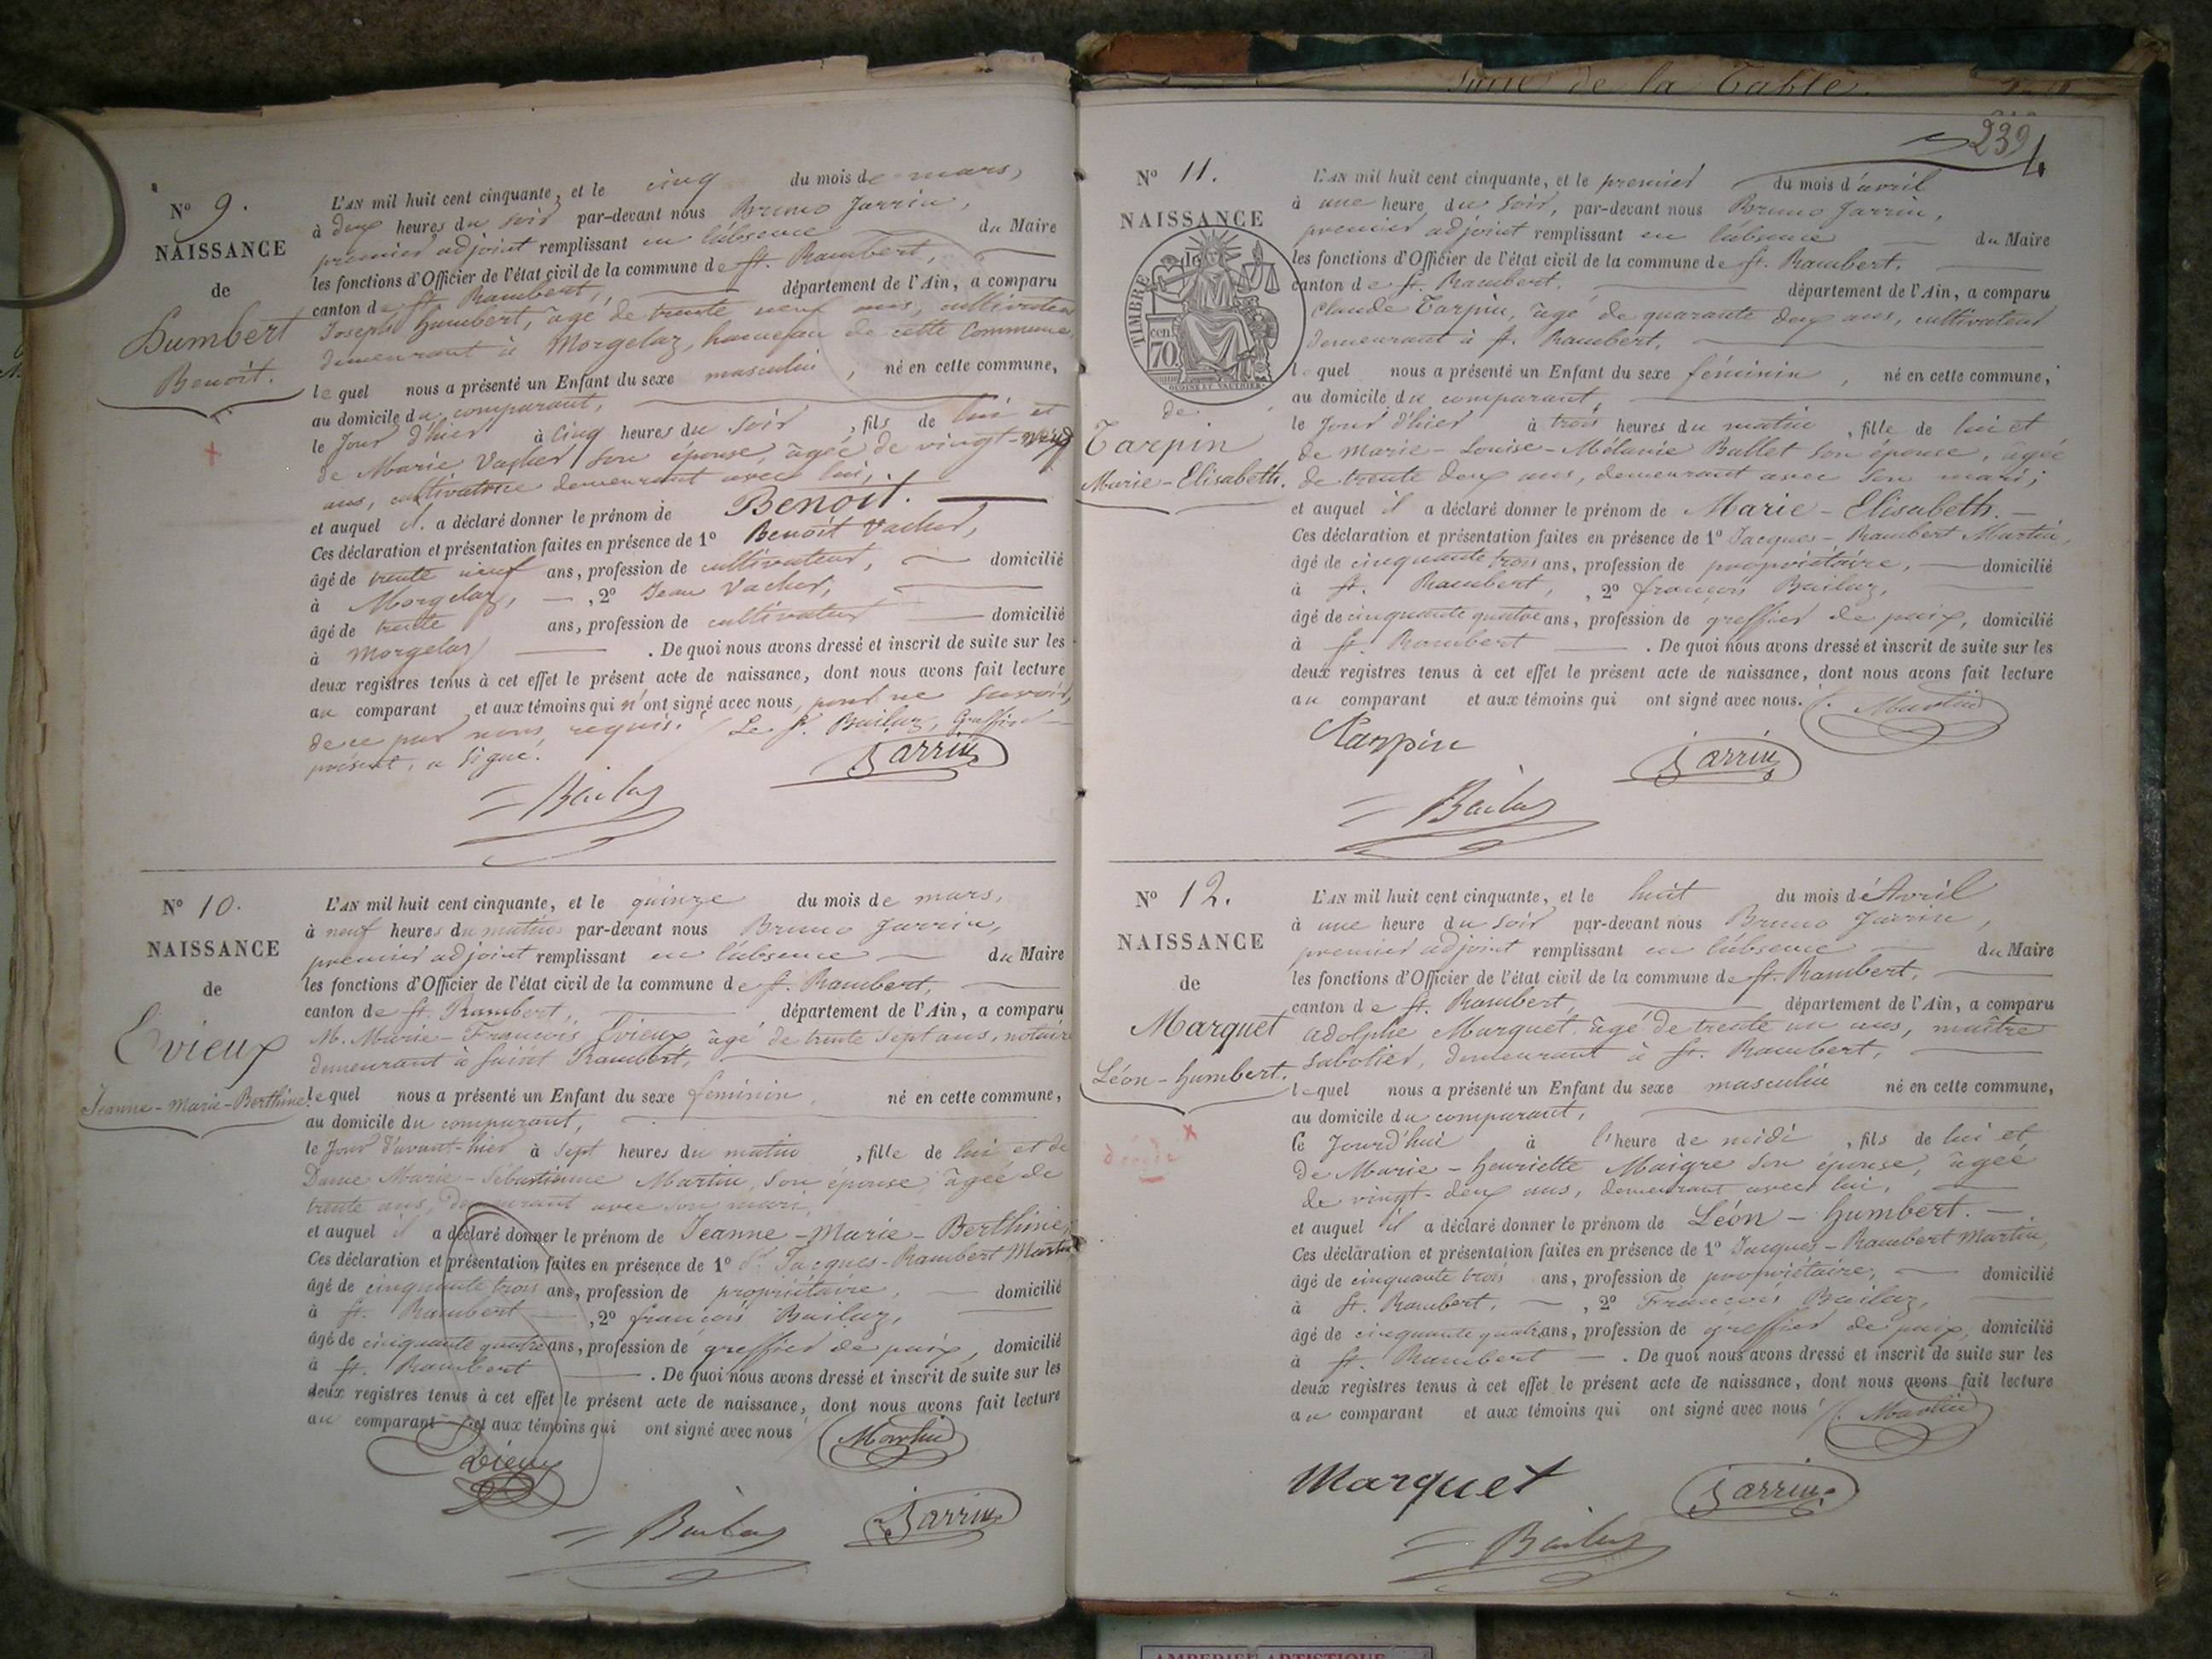 N° 9.
NAISSANCE
de
Humbert
Benoit.
L'AN mil huit cent cinquante, et le cinq du mois de mars,
à deux heures du soir par-devant nous Bruno Jarrin,
premier adjoint remplissant en l'absence du Maire
les fonctions d'Officier de l'état civil de la commune de St. Rambert,
canton de St. Rambert, département de l'Ain, a comparu
Joseph Humbert, âgé de trente neuf ans, cultivateur
demeurant à Morgelaz, hameau de cette Commune,
lequel nous a présenté un Enfant du sexe masculin, né en cette commune,
au domicile du comparant,
le Jour d'hier à cinq heures du soir, fils de lui et
de Marie Vacher son épouse, âgée de vingt-neuf
ans, cultivatrice demeurant avec lui,
et auquel il a déclaré donner le prénom de Benoit.
Ces déclaration et présentation faites en présence de 1° Benoit Vacher,
âgé de trente neuf ans, profession de cultivateur, domicilié
à Morgelaz, , 2° Jean Vacher,
âgé de trente ans, profession de cultivateur domicilié
à Morgelaz . De quoi nous avons dressé et inscrit de suite sur les
deux registres tenus à cet effet le présent acte de naissance, dont nous avons fait lecture
au comparant et aux témoins qui n'ont signé avec nous, pour ne savoir,
de ce par nous requis. Le S. Bailaz, Greffier
présent, a signé.
Jarrin
Bailaz
N° 10.
NAISSANCE
de
Evieux
Jeanne-Marie-Berthine.
L'AN mil huit cent cinquante, et le quinze du mois de mars,
à neuf heures du matin par-devant nous Bruno Jarrin,
premier adjoint remplissant en l'absence du Maire
les fonctions d'Officier de l'état civil de la commune de St. Rambert,
canton de St. Rambert, département de l'Ain, a comparu
M. Marie-François Evieux, âgé de trente sept ans, notaire
demeurant à Saint Rambert,
lequel nous a présenté un Enfant du sexe féminin, né en cette commune,
au domicile du comparant,
le Jour d'avant-hier à sept heures du matin, fille de lui et de
Dame Marie-Sébastienne Martin, son épouse, âgée de
trente ans, demeurant avec son mari,
et auquel il a déclaré donner le prénom de Jeanne-Marie-Berthine,
Ces déclaration et présentation faites en présence de 1° Sr Jacques-Rambert Martin,
âgé de cinquante trois ans, profession de propriétaire, domicilié
à St. Rambert , 2° François Bailaz,
âgé de cinquante quatre ans, profession de greffier de paix, domicilié
à St. Rambert . De quoi nous avons dressé et inscrit de suite sur les
deux registres tenus à cet effet le présent acte de naissance, dont nous avons fait lecture
au comparant et aux témoins qui ont signé avec nous
Martin
Evieux
Bailaz Jarrin
Suite de la Table.
239
N° 11.
NAISSANCE
TIMBRE
70 cen
de
Tarpin
Marie-Elisabeth.
L'AN mil huit cent cinquante, et le premier du mois d'avril
à une heure du soir, par-devant nous Bruno Jarrin,
premier adjoint remplissant en l'absence du Maire
les fonctions d'Officier de l'état civil de la commune de St. Rambert,
canton de St. Rambert, département de l'Ain, a comparu
Claude Tarpin, âgé de quarante deux ans, cultivateur
demeurant à St. Rambert,
lequel nous a présenté un Enfant du sexe féminin, né en cette commune,
au domicile du comparant,
le Jour d'hier à trois heures du matin, fille de lui et
de Marie-Louise-Mélanie Ballet son épouse, âgée
de trente deux ans, demeurant avec son mari;
et auquel il a déclaré donner le prénom de Marie-Elisabeth.
Ces déclaration et présentation faites en présence de 1° Jacques-Rambert Martin,
âgé de cinquante trois ans, profession de propriétaire, domicilié
à St. Rambert, , 2° François Bailaz,
âgé de cinquante quatre ans, profession de greffier de paix, domicilié
à St. Rambert . De quoi nous avons dressé et inscrit de suite sur les
deux registres tenus à cet effet le présent acte de naissance, dont nous avons fait lecture
au comparant et aux témoins qui ont signé avec nous.
Martin
Tarpin Jarrin
Bailaz
N° 12.
NAISSANCE
de
Marquet
Léon-Humbert.
décédé
L'AN mil huit cent cinquante, et le huit du mois d'Avril
à une heure du soir par-devant nous Bruno Jarrin,
premier adjoint remplissant en l'absence du Maire
les fonctions d'Officier de l'état civil de la commune de St. Rambert,
canton de St. Rambert, département de l'Ain, a comparu
Adolphe Marquet âgé de trente un ans, maître
sabotier, demeurant à St. Rambert,
lequel nous a présenté un Enfant du sexe masculin né en cette commune,
au domicile du comparant,
le Jourd'hui à l'heure de midi, fils de lui et
de Marie-Henriette Maigre son épouse, âgée
de vingt-deux ans, demeurant avec lui,
et auquel il a déclaré donner le prénom de Léon-Humbert.
Ces déclaration et présentation faites en présence de 1° Jacques-Rambert Martin,
âgé de cinquante trois ans, profession de propriétaire, domicilié
à St. Rambert, , 2° François Bailaz,
âgé de cinquante quatre ans, profession de greffier de paix, domicilié
à St. Rambert . De quoi nous avons dressé et inscrit de suite sur les
deux registres tenus à cet effet le présent acte de naissance, dont nous avons fait lecture
au comparant et aux témoins qui ont signé avec nous
Martin
Marquet Jarrin
Bailaz
AMBERIEU ARTISTIQUE